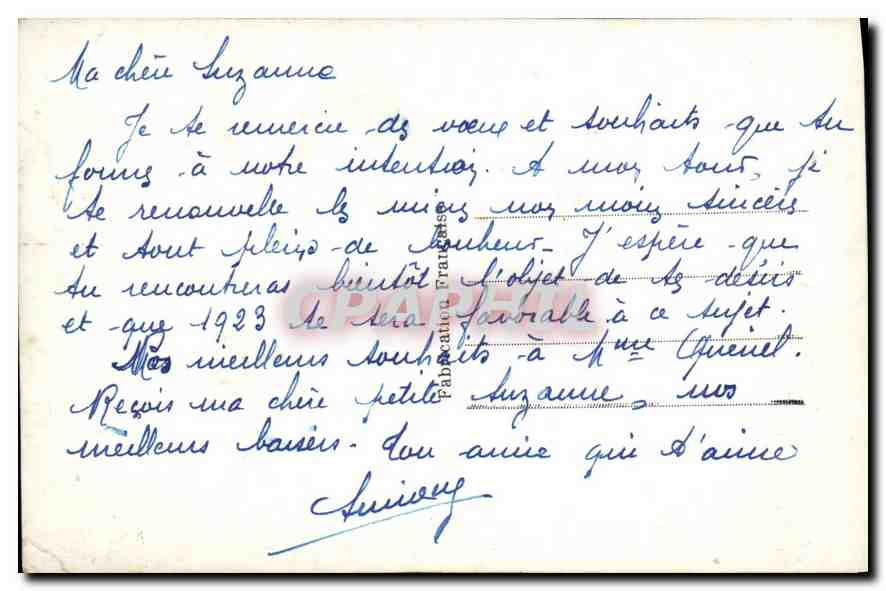 Ma chère Suzanne
Je te remercie des voeux et souhaits que tu
formes à notre intention. A mon tour, je
te renouvelle les miens non moins sincères
et tout pleins de bonheur. J'espère que
tu rencontreras bientôt l'objet de tes désirs
et que 1923 te sera favorable à ce sujet.
Mes meilleurs souhaits à Mme Quénel.
Reçois ma chère petite Suzanne, nos
meilleurs baisers. Ton amie qui t'aime
Fabrication Française
CPAPHIL